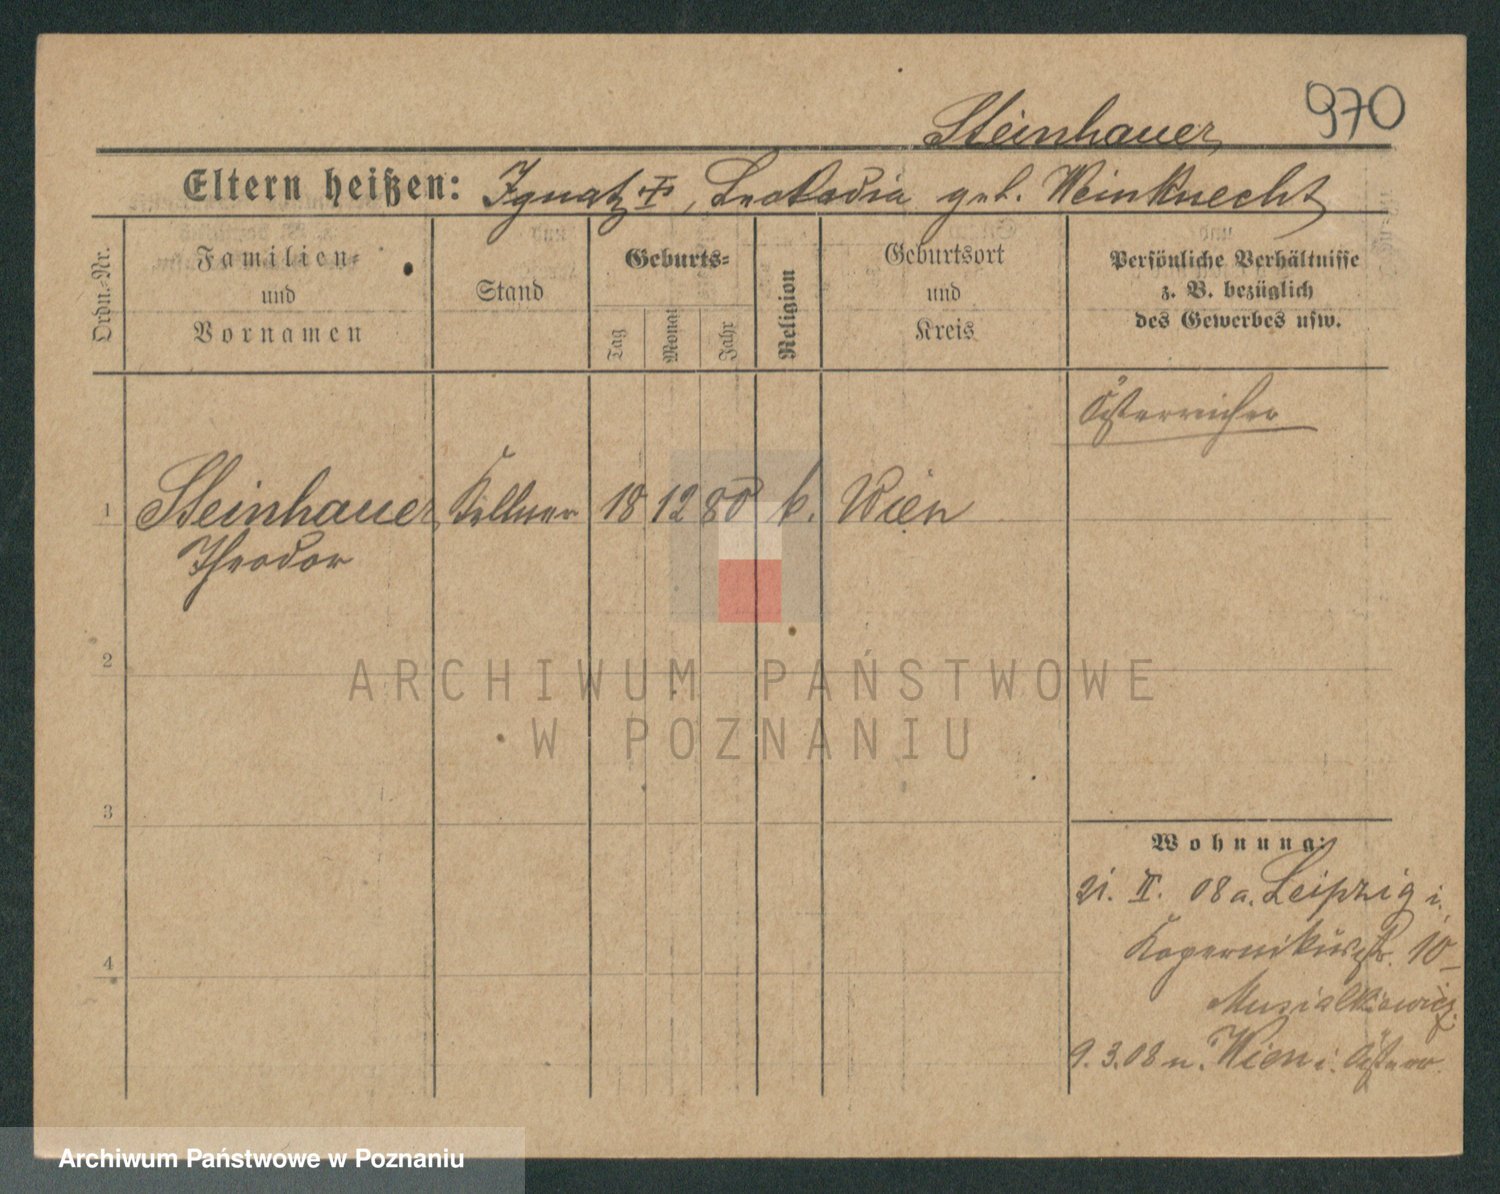 970
Steinhauer,
Eltern heißen: Ignatz †, Leokadia geb. Weinknecht
Ordn.-Nr.
Familien-
und
Vornamen
Stand
Geburts-
Tag
Monat
Jahr
Religion
Geburtsort
und
Kreis
Persönliche Verhältnisse
z. B. bezüglich
des Gewerbes usw.
Österreicher
1 Steinhauer Kellner 18 12 80 k. Wien
Theodor
2
3
4
Wohnung:
21. II. 08 a. Leipzig i.
Kopernikusstr. 10
Musialkiewicz
9. 3. 08 n. Wien i. Österr.
ARCHIWUM PAŃSTWOWE
W POZNANIU
Archiwum Państwowe w Poznaniu